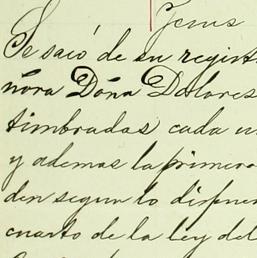 Se sacó de su regist
ñora Doña Dolores
timbradas cada u
y ademas la primera
den segun lo dispue
cuarto de la ley del